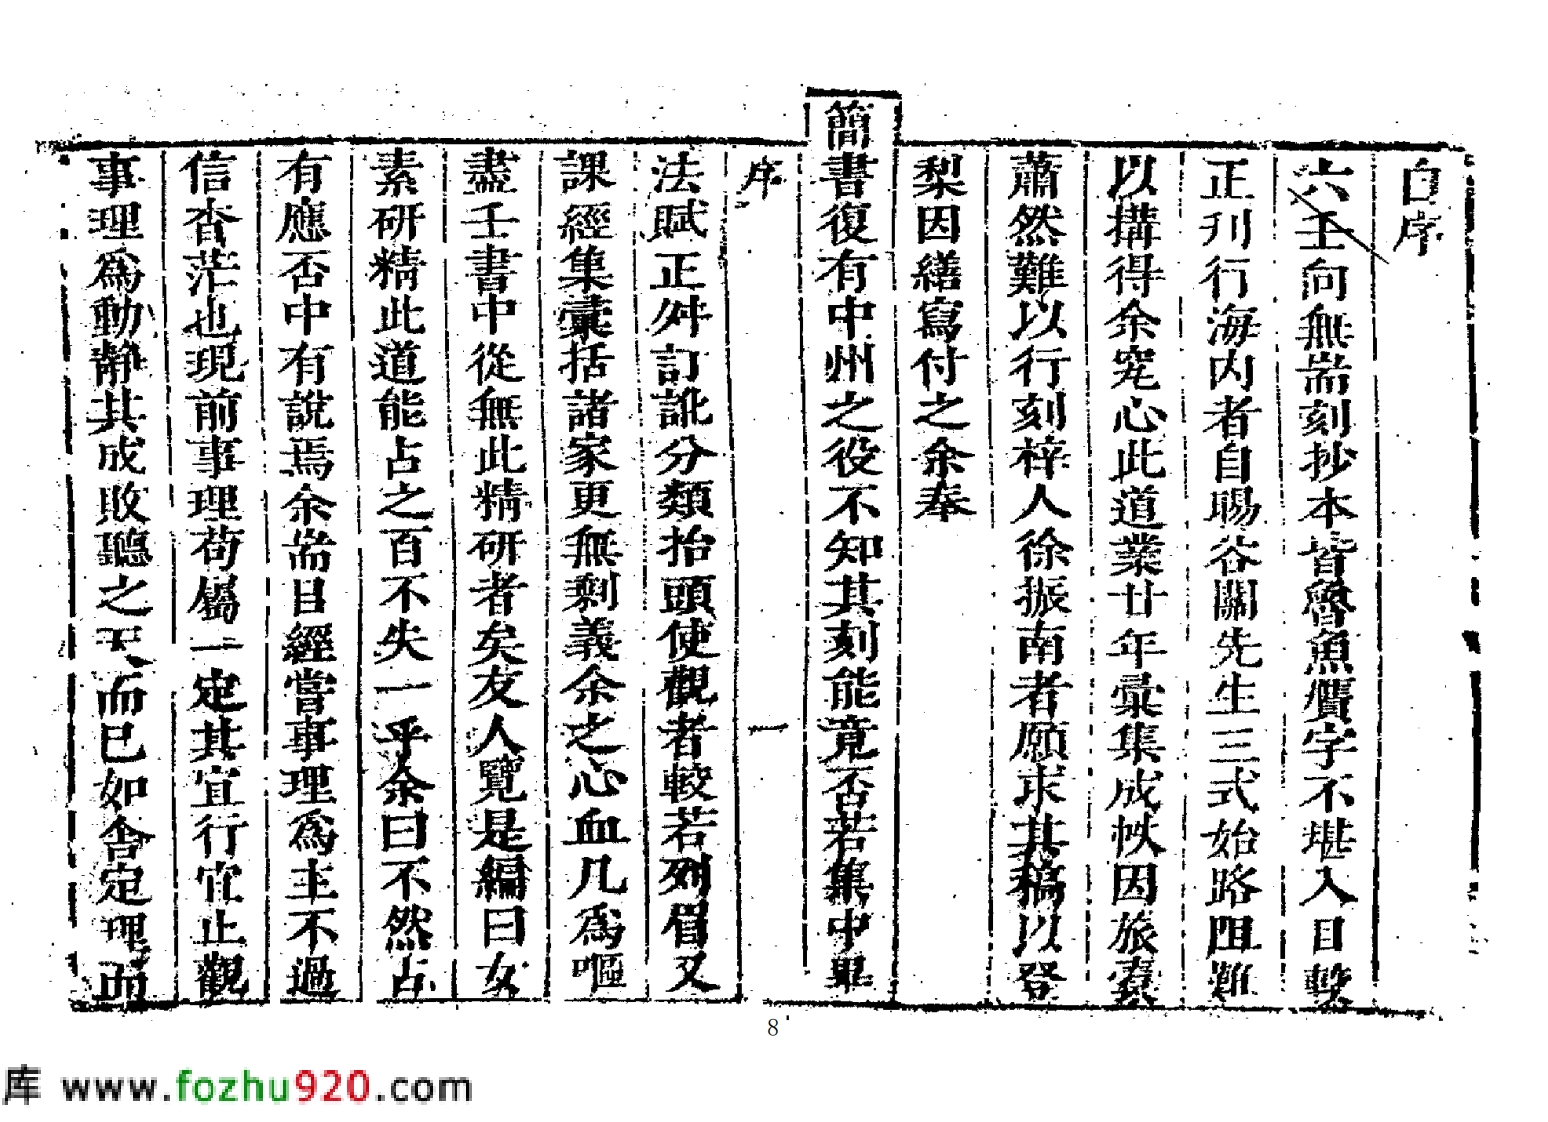 自序
六壬向無耑刻抄本皆魯魚贋字不堪入目擊
正刋行海内者自賜谷關先生三式始路阻難
以搆得余究心此道業廿年彙集成帙因旅橐
蕭然難以行刻梓人徐振南者願求其稿以登
梨因繕寫付之余奉
簡書復有中州之役不知其刻能竟否若集中畢
序
一
法賦正舛訂訛分類抬頭使觀者較若列眉又
課經集彙括諸家更無剩義余之心血几爲嘔
盡壬書中從無此精研者矣友人覽是編曰女
素研精此道能占之百不失一乎余曰不然占
有應否中有說焉余耑目經嘗事理爲主不過
信杳茫也現前事理苟屬一定其宜行宜止觀
事理爲動靜其成敗聽之天而已如舍定理而
8
库 www.fozhu920.com